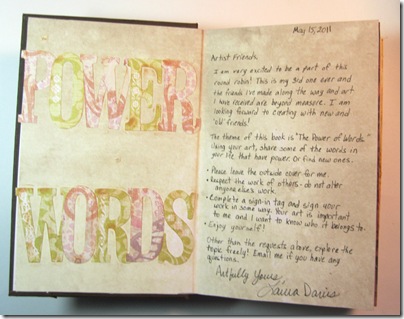 POWER
WORDS
May 15, 2011
Artist Friends,
I am very excited to be a part of this
round robin! This is my 3rd one ever and
the friends I've made along the way and art
I have received are beyond measure. I am
looking forward to creating with new and
"old" friends!
The theme of this book is "The Power of Words."
Using your art, share some of the words in
your life that have power. Or find new ones.
• Please leave the outside cover for me.
• Respect the work of others - do not alter
anyone else's work.
• Complete a sign-in tag and sign your
work in some way. Your art is important
to me and I want to know who it belongs to.
• Enjoy yourself!
Other than the requests above, explore the
topic freely! Email me if you have any
questions.
Artfully Yours,
Laura Davis